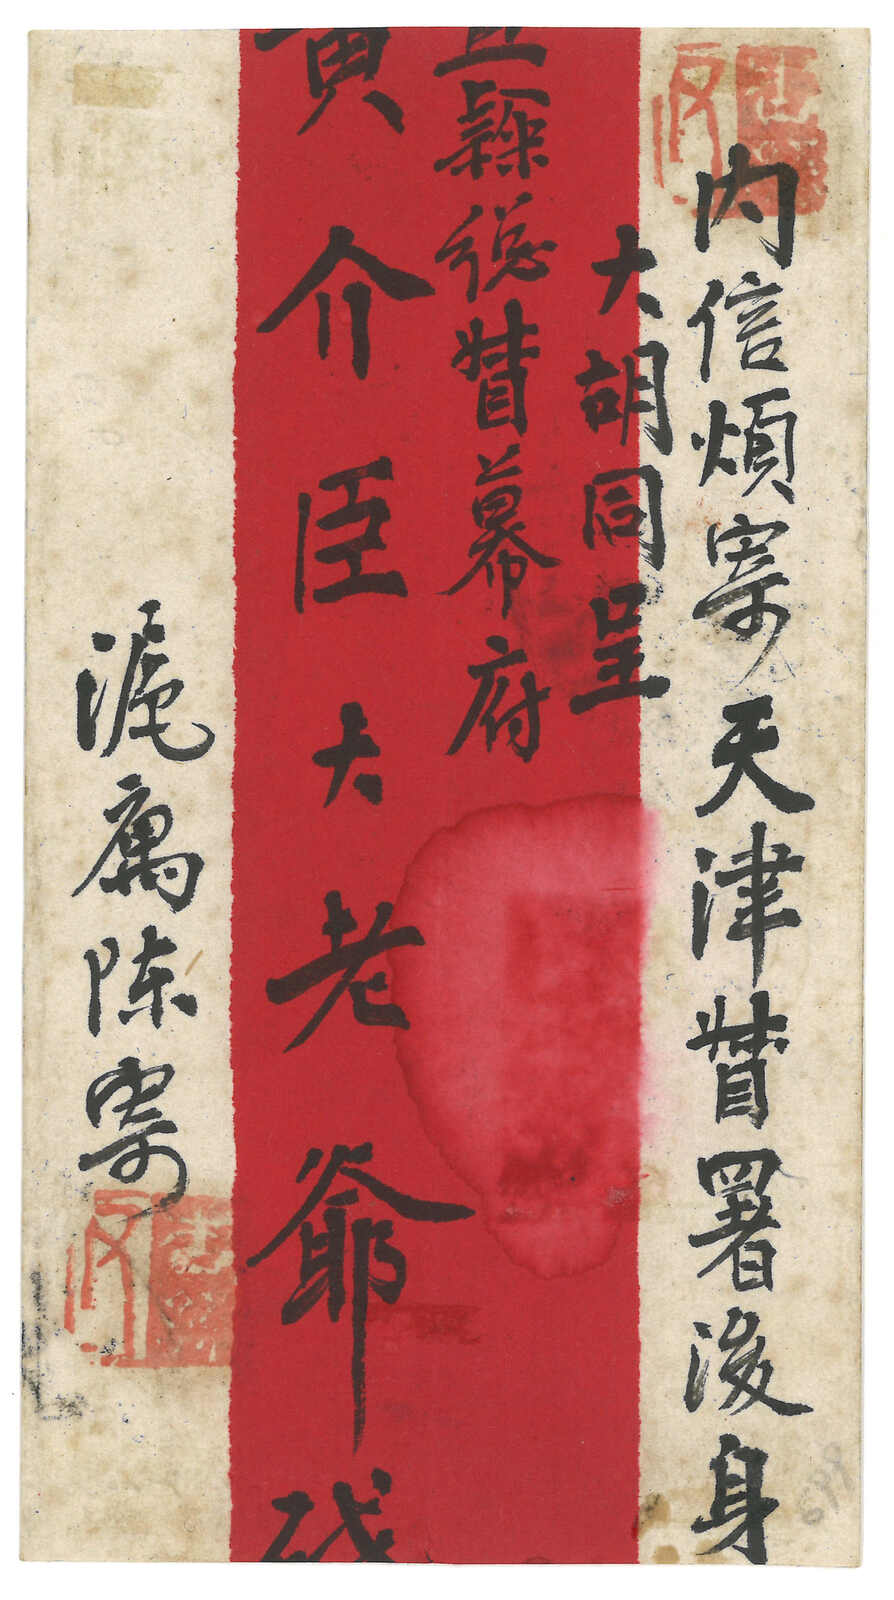 內信煩寄天津督署後身
大胡同呈
直隸總督幕府
黃介臣大老爺
滬寓陳寄